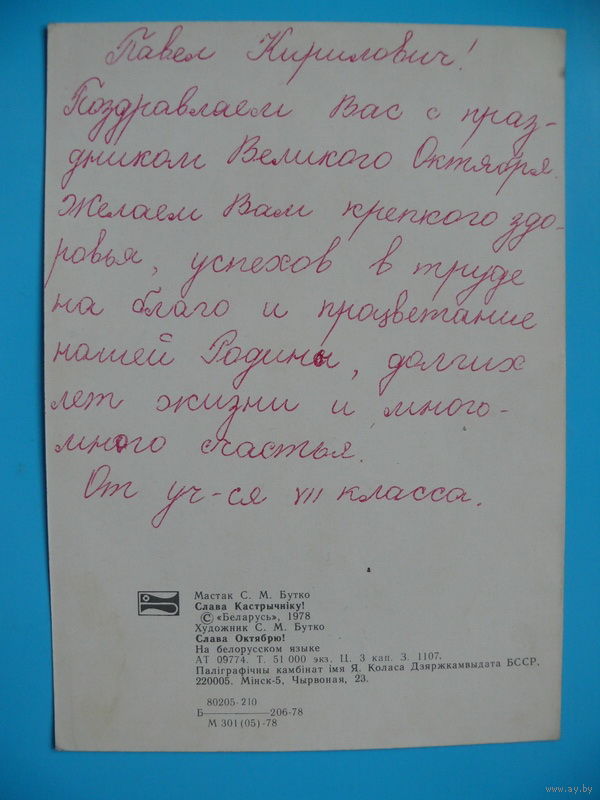 Павел Кирилович!
Поздравлаем Вас с праз-
дником Великого Октября.
Желаем Вам крепкого здо-
ровья, успехов в труде
на благо и процветание
нашей Родины, долгих
лет жизни и много-
много счастья.
От уч-ся VII класса.
Мастак С. М. Бутко
Слава Кастрычніку!
© «Беларусь», 1978
Художник С. М. Бутко
Слава Октябрю!
На белорусском языке
АТ 09774. Т. 51 000 экз. Ц. 3 кап. З. 1107.
Паліграфічны камбінат імя Я. Коласа Дзяржкамвыдата БССР,
220005. Мінск-5, Чырвоная, 23.
80205-210
Б————206-78
М 301(05)-78
www.ay.by